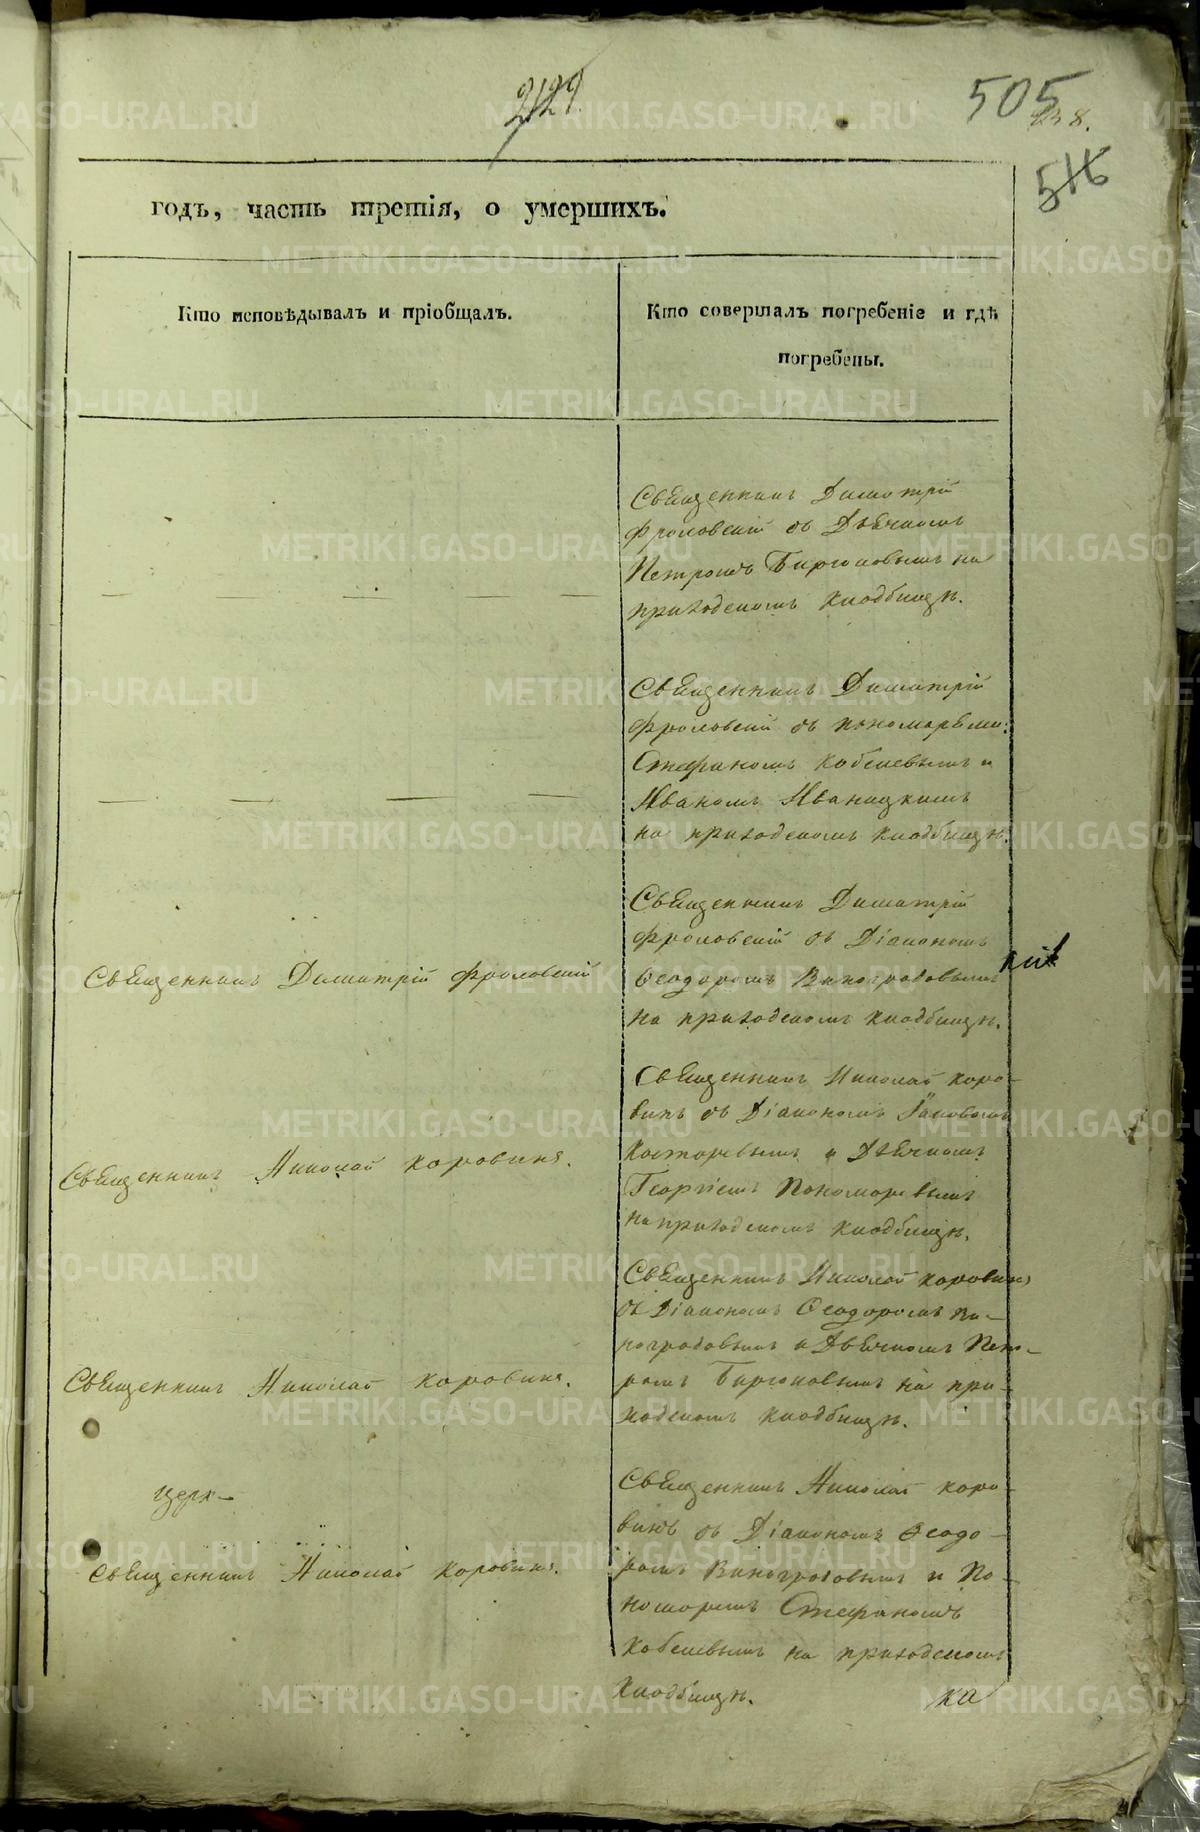 2129
505
238.
516
годъ, часть третія, о умершихъ.
Кто исповѣдывалъ и пріобщалъ.
Кто совершалъ погребеніе и гдѣ
погребены.
Священникъ Димитрій
Фроловскій съ Дьячкомъ
Петромъ Бирюковымъ на
приходскомъ кладбищѣ.
Священникъ Димитрій
Фроловскій съ пономарями:
Стефаномъ Кобелевымъ и
Иваномъ Иваницкимъ
на приходскомъ кладбищѣ.
Священникъ Димитрій Фроловскій
Священникъ Димитрій
Фроловскій съ Діакономъ
Ѳеодоромъ Виноградовымъ
на приходскомъ кладбищѣ.
Священникъ Николай Коровинъ.
Священникъ Николай Коро-
винъ съ Діакономъ Іаковомъ
Косторевымъ и Дьячкомъ
Георгіемъ Пономаревымъ
на приходскомъ кладбищѣ.
Священникъ Николай Коровинъ.
Священникъ Николай Коровинъ
съ Діакономъ Ѳеодоромъ Ви-
ноградовымъ и Дьячкомъ Пет-
ромъ Бирюковымъ на при-
ходскомъ кладбищѣ.
церк-
Священникъ Николай Коровинъ.
Священникъ Николай Коро-
винъ съ Діакономъ Ѳеодо-
ромъ Виноградовымъ и По-
номаремъ Стефаномъ
Кобелевымъ на приходскомъ
кладбищѣ.
ка
METRIKI.GASO-URAL.RU